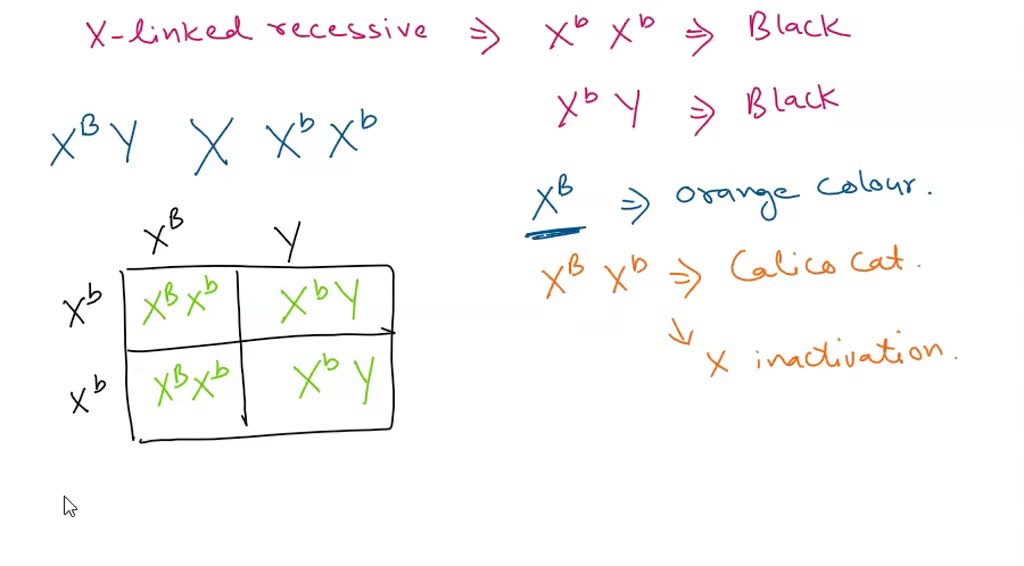 X-linked recessive ⇒ Xᵇ Xᵇ ⇒ Black
Xᵇ Y ⇒ Black
Xᴮ Y X Xᵇ Xᵇ
Xᴮ ⇒ orange colour.
Xᴮ Xᵇ ⇒ Calico cat.
↘ X inactivation.
Xᴮ Y
Xᵇ Xᴮ Xᵇ Xᵇ Y
Xᵇ Xᴮ Xᵇ Xᵇ Y